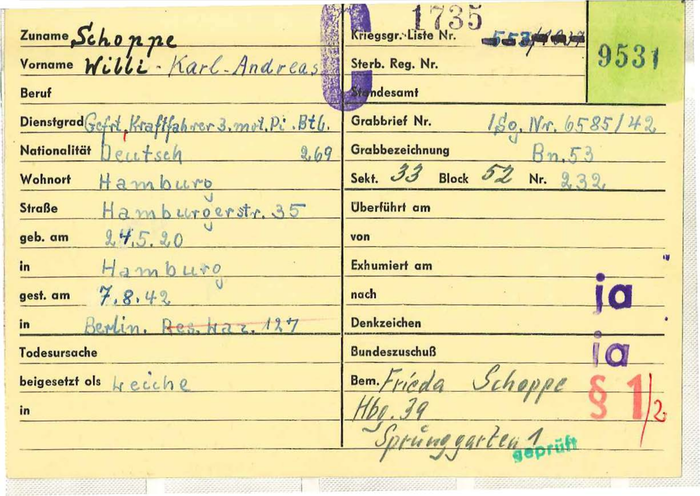 1735
9531
Zuname Schoppe
Vorname Willi-Karl-Andreas
Beruf
Dienstgrad Gefrt, Kraftfahrer 3. mot. Pi. Btl.
Nationalität Deutsch 269
Wohnort Hamburg
Straße Hamburgerstr. 35
geb. am 24.5.20
in Hamburg
gest. am 7.8.42
in Berlin. Res. Laz. 127
Todesursache
beigesetzt als Leiche
in
Kriegsgr. Liste Nr. 553
Sterb. Reg. Nr.
Standesamt
Grabbrief Nr. 6585/42
Grabbezeichnung Bn. 53
Sekt. 33 Block 52 Nr. 232
Überführt am
von
Exhumiert am
nach ja
Denkzeichen
Bundeszuschuß ja
Bem. Frieda Schoppe § 1/2
Hbg. 39
Sprünggarten 1
geprüft